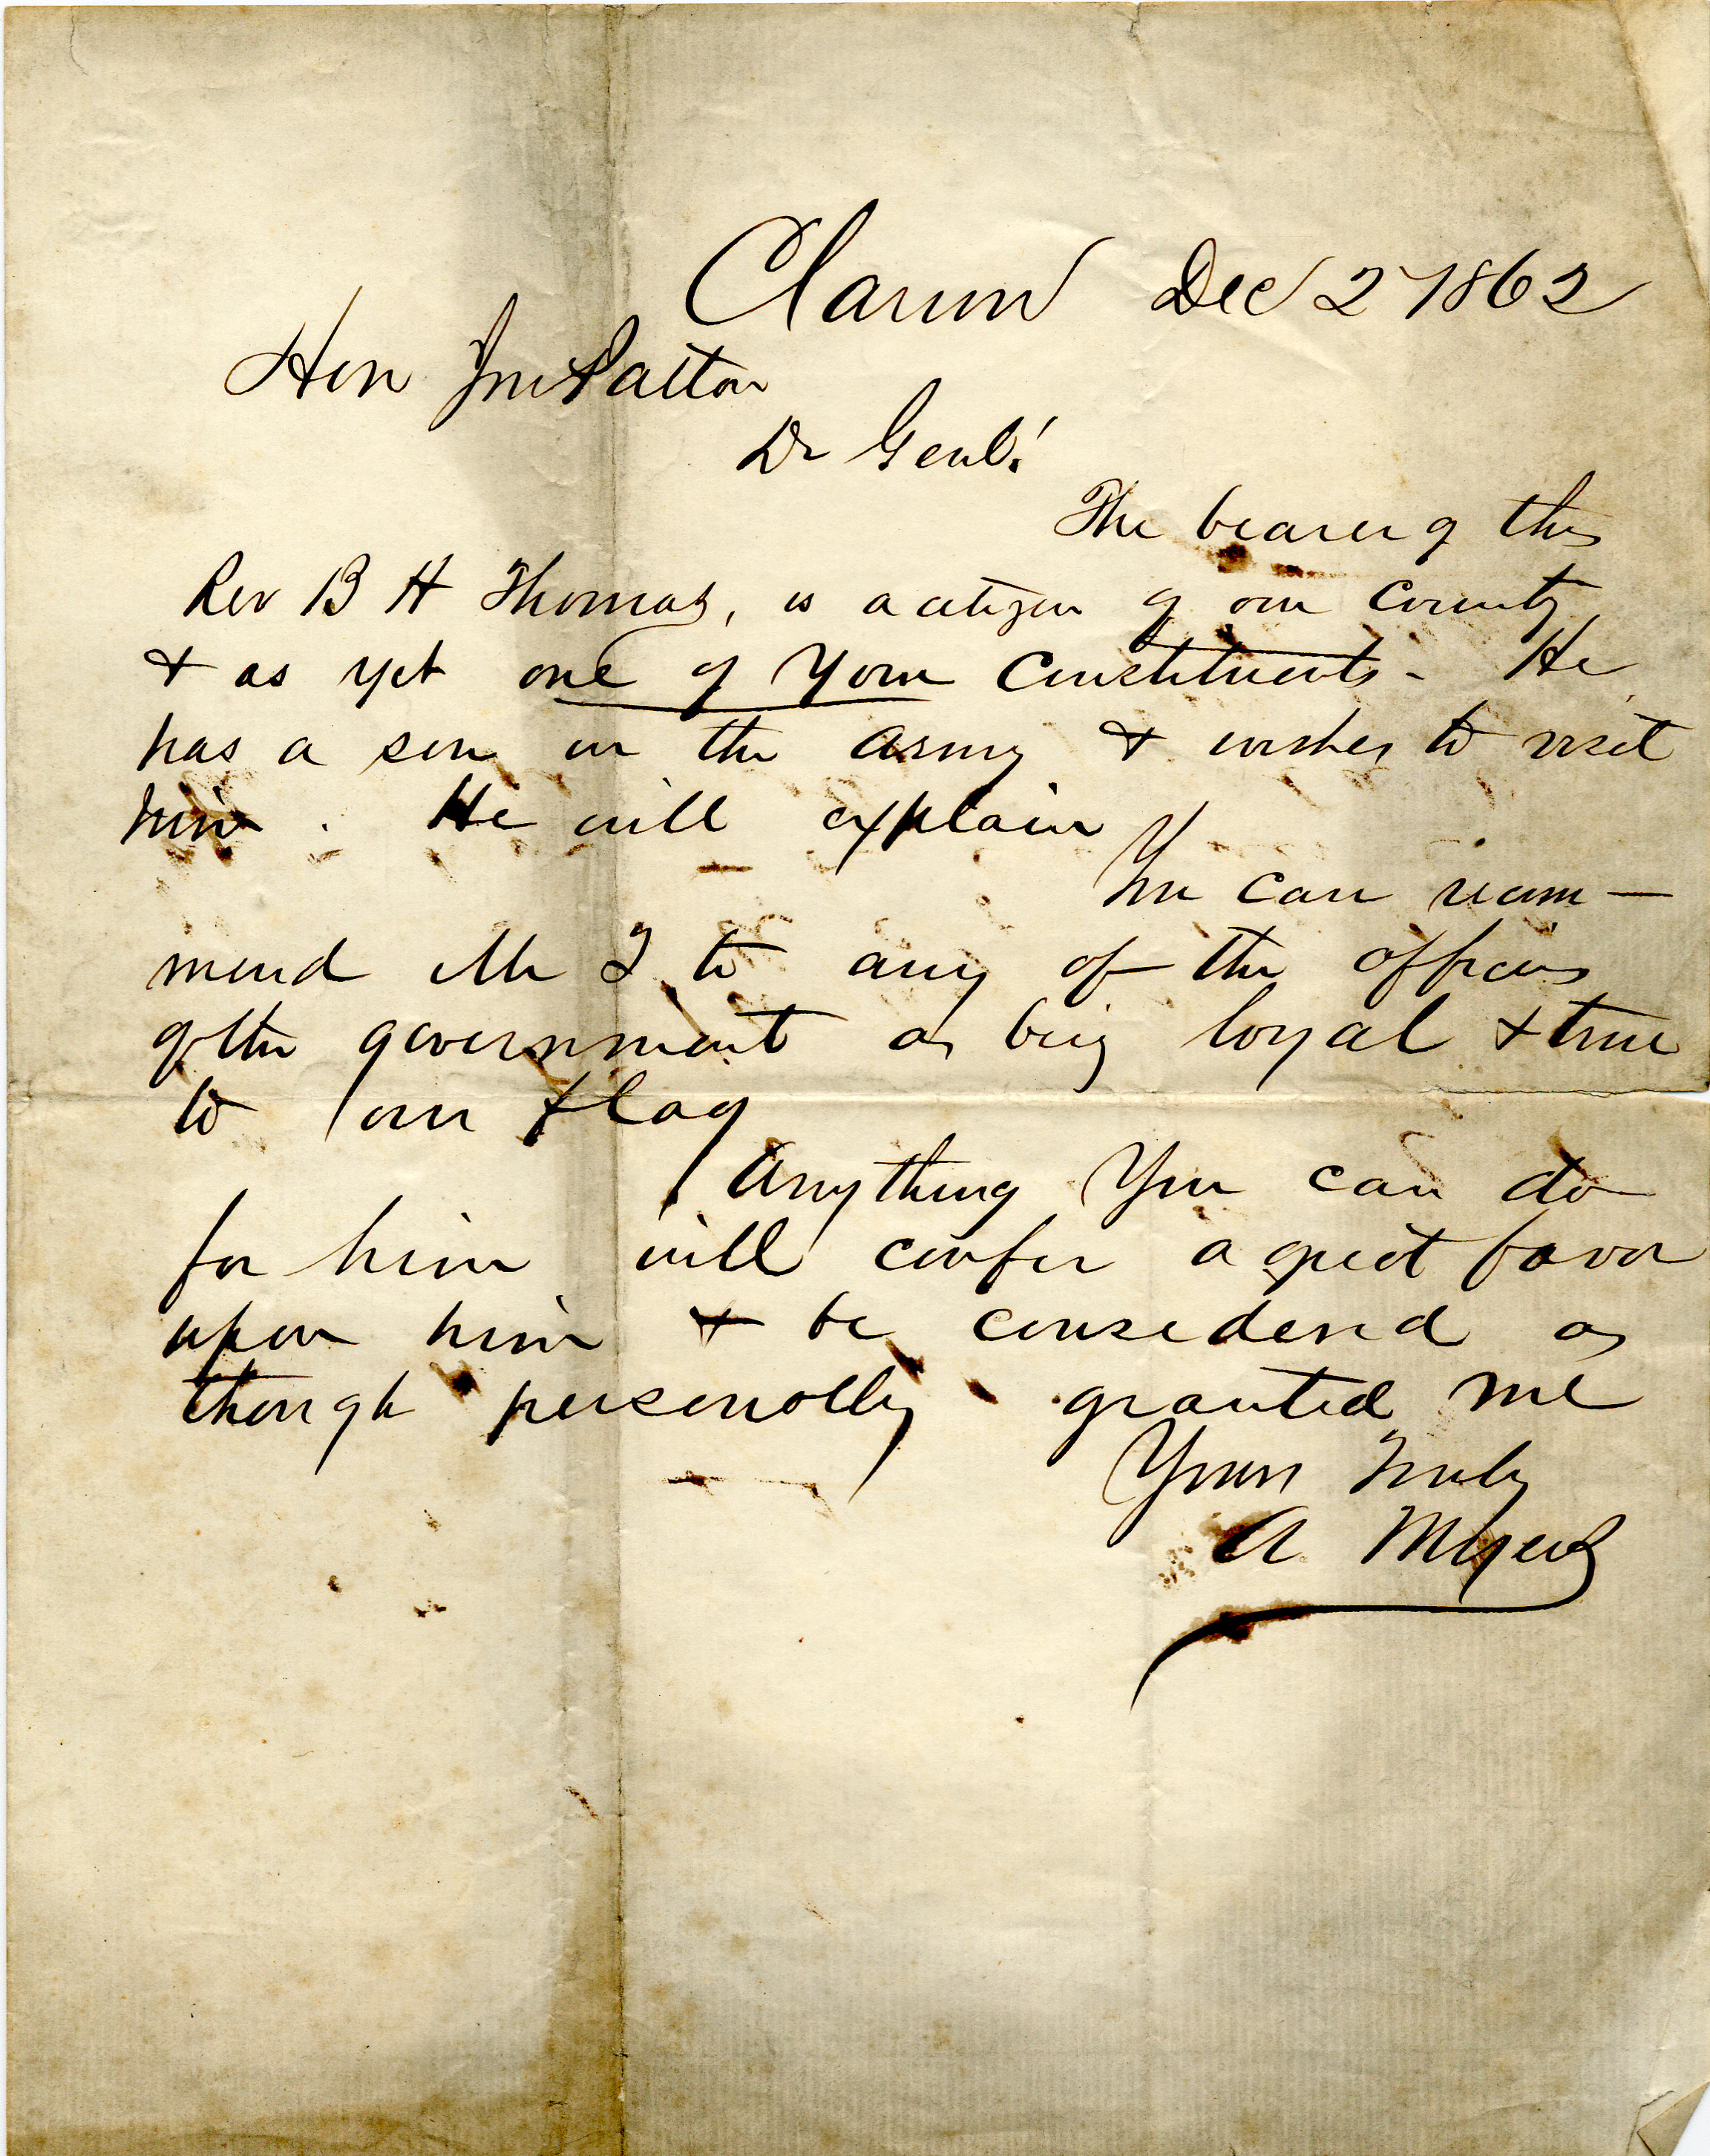 Clarion Dec 2 1862
Hon Jno Patton
Dr Genl!
The bearer of this
Rev B H Thomas, is a citizen of our County
& as yet one of Your Constituents - He
has a son in the army & wishes to visit
him. He will explain
You can recom—
mend Mr T to any of the officers
of the government as being loyal & true
to our flag
Anything You can do
for him will confer a great favor
upon him & be considered as
though personally granted me
Yours Truly
A Myers